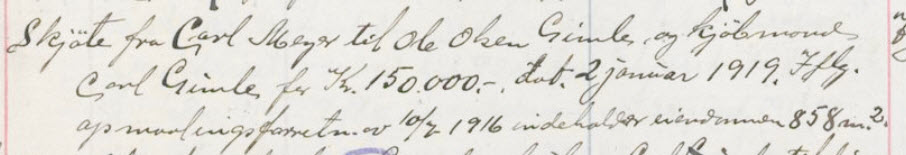 Skjøte fra Carl Meyer til Ole Olsen Gimle, og kjøbmand
Carl Gimle, for Kr. 150.000.-. dat. 2 januar 1919. Iflg.
opmaalingsforretn. av 10/7 1916 indeholder eiendommen 858 m.2.